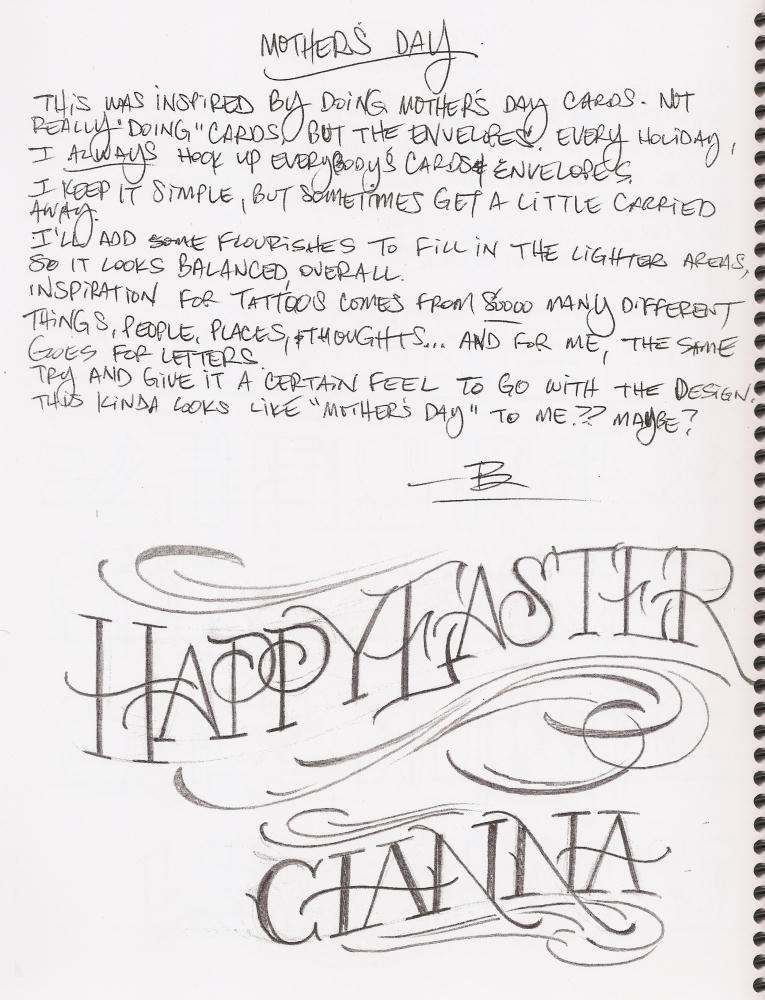 MOTHER'S DAY.
THIS WAS INSPIRED BY DOING MOTHER'S DAY CARDS. NOT
REALLY "DOING" CARDS, BUT THE ENVELOPES. EVERY HOLIDAY,
I ALWAYS HOOK UP EVERYBODY'S CARDS & ENVELOPES.
I KEEP IT SIMPLE, BUT SOMETIMES GET A LITTLE CARRIED
AWAY.
I'LL ADD SOME FLOURISHES TO FILL IN THE LIGHTER AREAS,
SO IT LOOKS BALANCED, OVERALL.
INSPIRATION FOR TATTOOS COMES FROM SOOOO MANY DIFFERENT
THINGS, PEOPLE, PLACES, & THOUGHTS... AND FOR ME, THE SAME
GOES FOR LETTERS.
TRY AND GIVE IT A CERTAIN FEEL TO GO WITH THE DESIGN.
THIS KINDA LOOKS LIKE "MOTHER'S DAY" TO ME?? MAYBE?
HAPPY EASTER
GIANNA